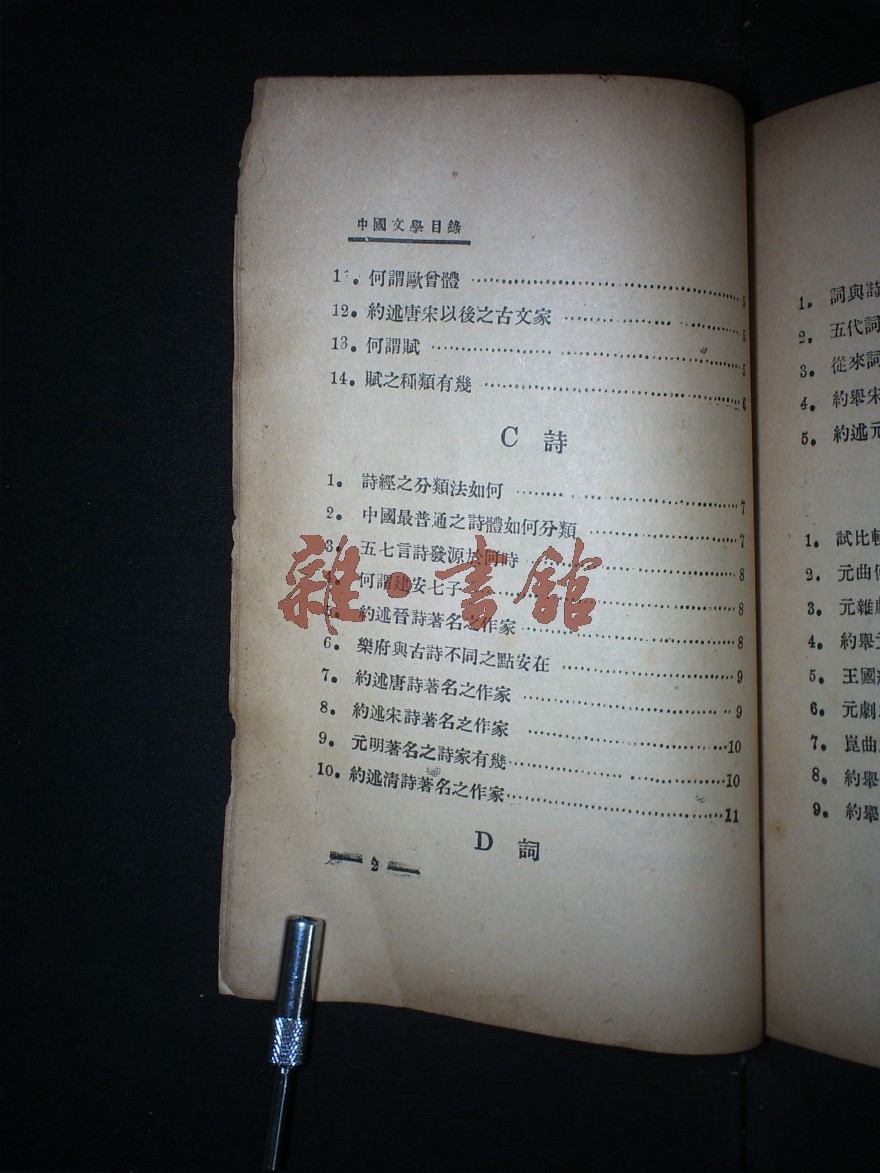 中國文學目錄
11. 何謂歐曾體 5
12. 約述唐宋以後之古文家 5
13. 何謂賦 5
14. 賦之種類有幾 6
C 詩
1. 詩經之分類法如何 7
2. 中國最普通之詩體如何分類 7
3. 五七言詩發源於何時 8
4. 何謂建安七子 8
5. 約述晉詩著名之作家 8
6. 樂府與古詩不同之點安在 9
7. 約述唐詩著名之作家 9
8. 約述宋詩著名之作家 10
9. 元明著名之詩家有幾 10
10. 約述清詩著名之作家 11
D 詞
2
雜·書館
1. 詞與詩
2. 五代詞
3. 從來詞
4. 約舉宋
5. 約述元
1. 試比較
2. 元曲
3. 元雜劇
4. 約舉元
5. 王國
6. 元劇
7. 崑曲
8. 約舉
9. 約舉